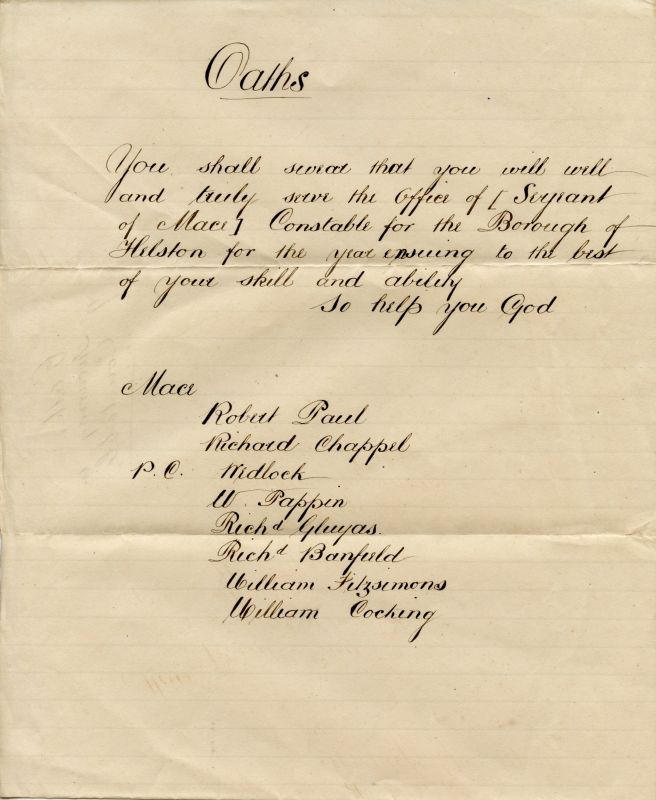 Oaths
You shall swear that you will well
and truly serve the office of [ Serjeant
of Mace ] Constable for the Borough of
Helston for the year ensuing to the best
of your skill and ability
So help you God
Mace
Robert Paul
Richard Chappel
P. C. Wedlock
W. Pappin
Richd Gluyas.
Richd Banfield
William Fitzsimons
William Cocking